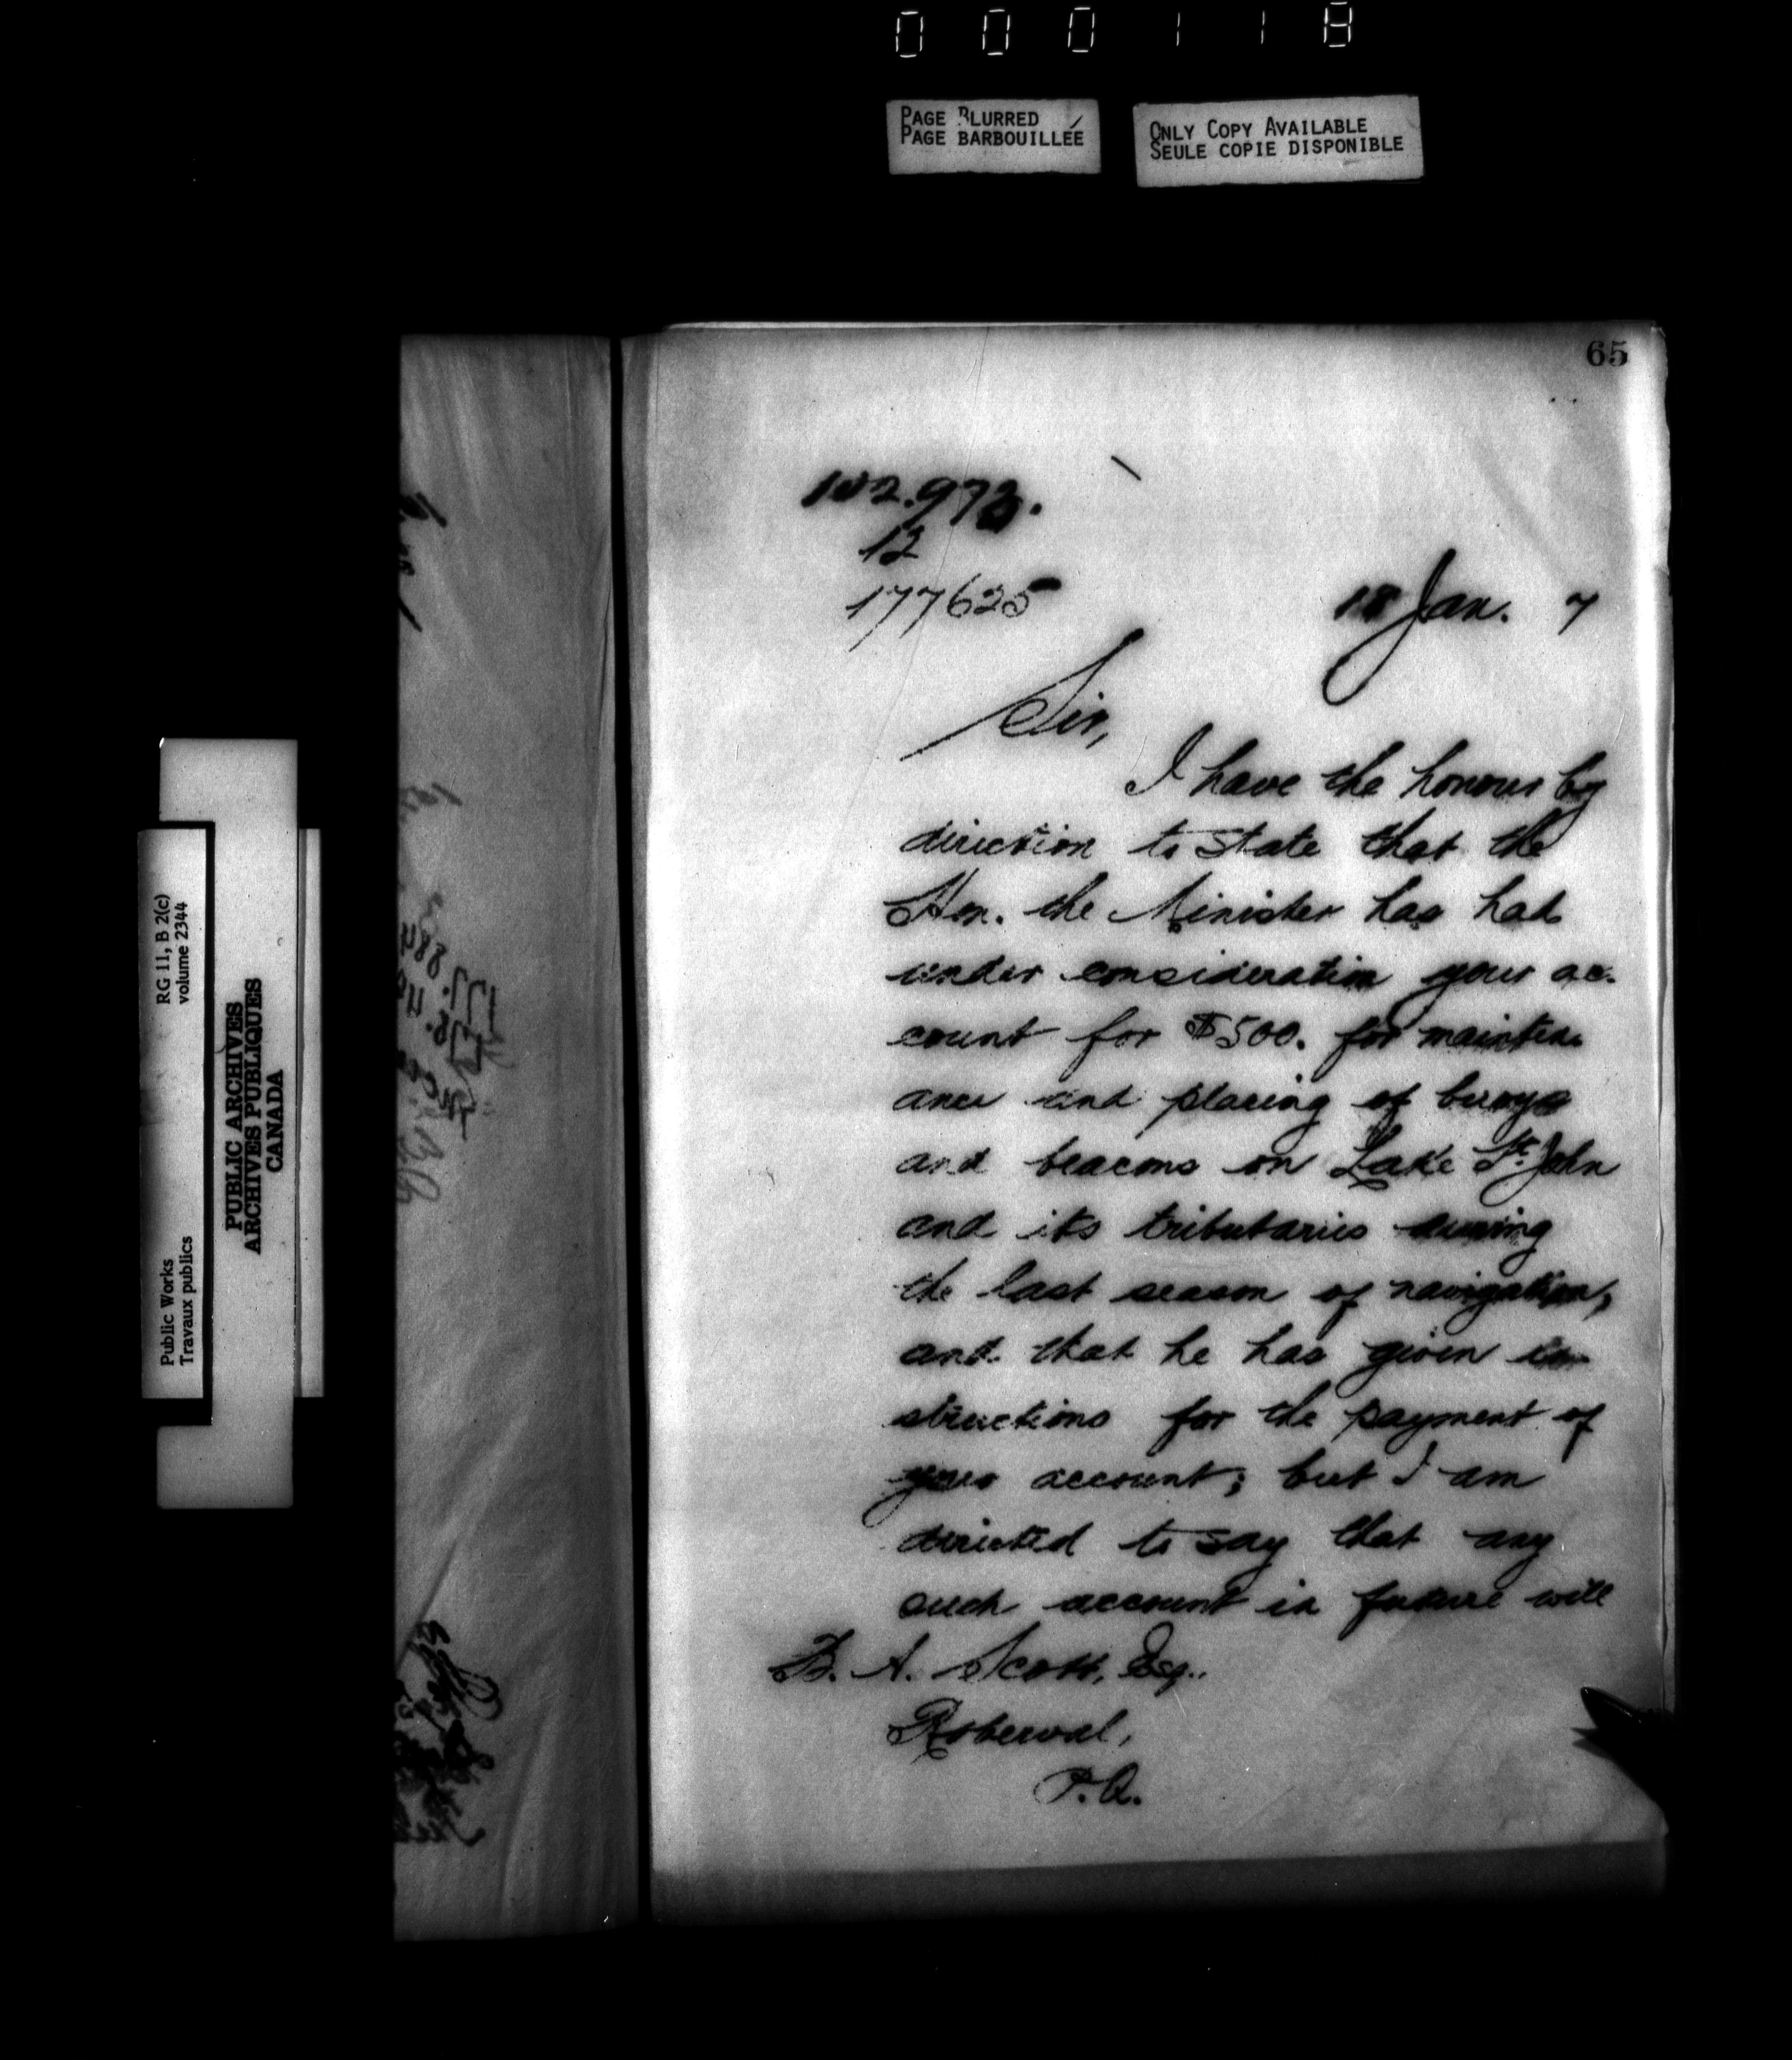 000118
PAGE BLURRED
PAGE BARBOUILLÉE
ONLY COPY AVAILABLE
SEULE COPIE DISPONIBLE
65
102.973.
12
177625
18 Jan. 7
Sir,
I have the honour by
direction to state that the
Hon. the Minister has had
under consideration your ac-
count for $500. for mainten-
ance and placing of buoys
and beacons on Lake St. John
and its tributaries during
the last season of navigation,
and that he has given in-
structions for the payment of
your account; but I am
directed to say that any
such account in future will
B. A. Scott, Esq.,
Roberval,
P.Q.
Public Works
Travaux publics
RG 11, B 2(c)
volume 2344
PUBLIC ARCHIVES
ARCHIVES PUBLIQUES
CANADA